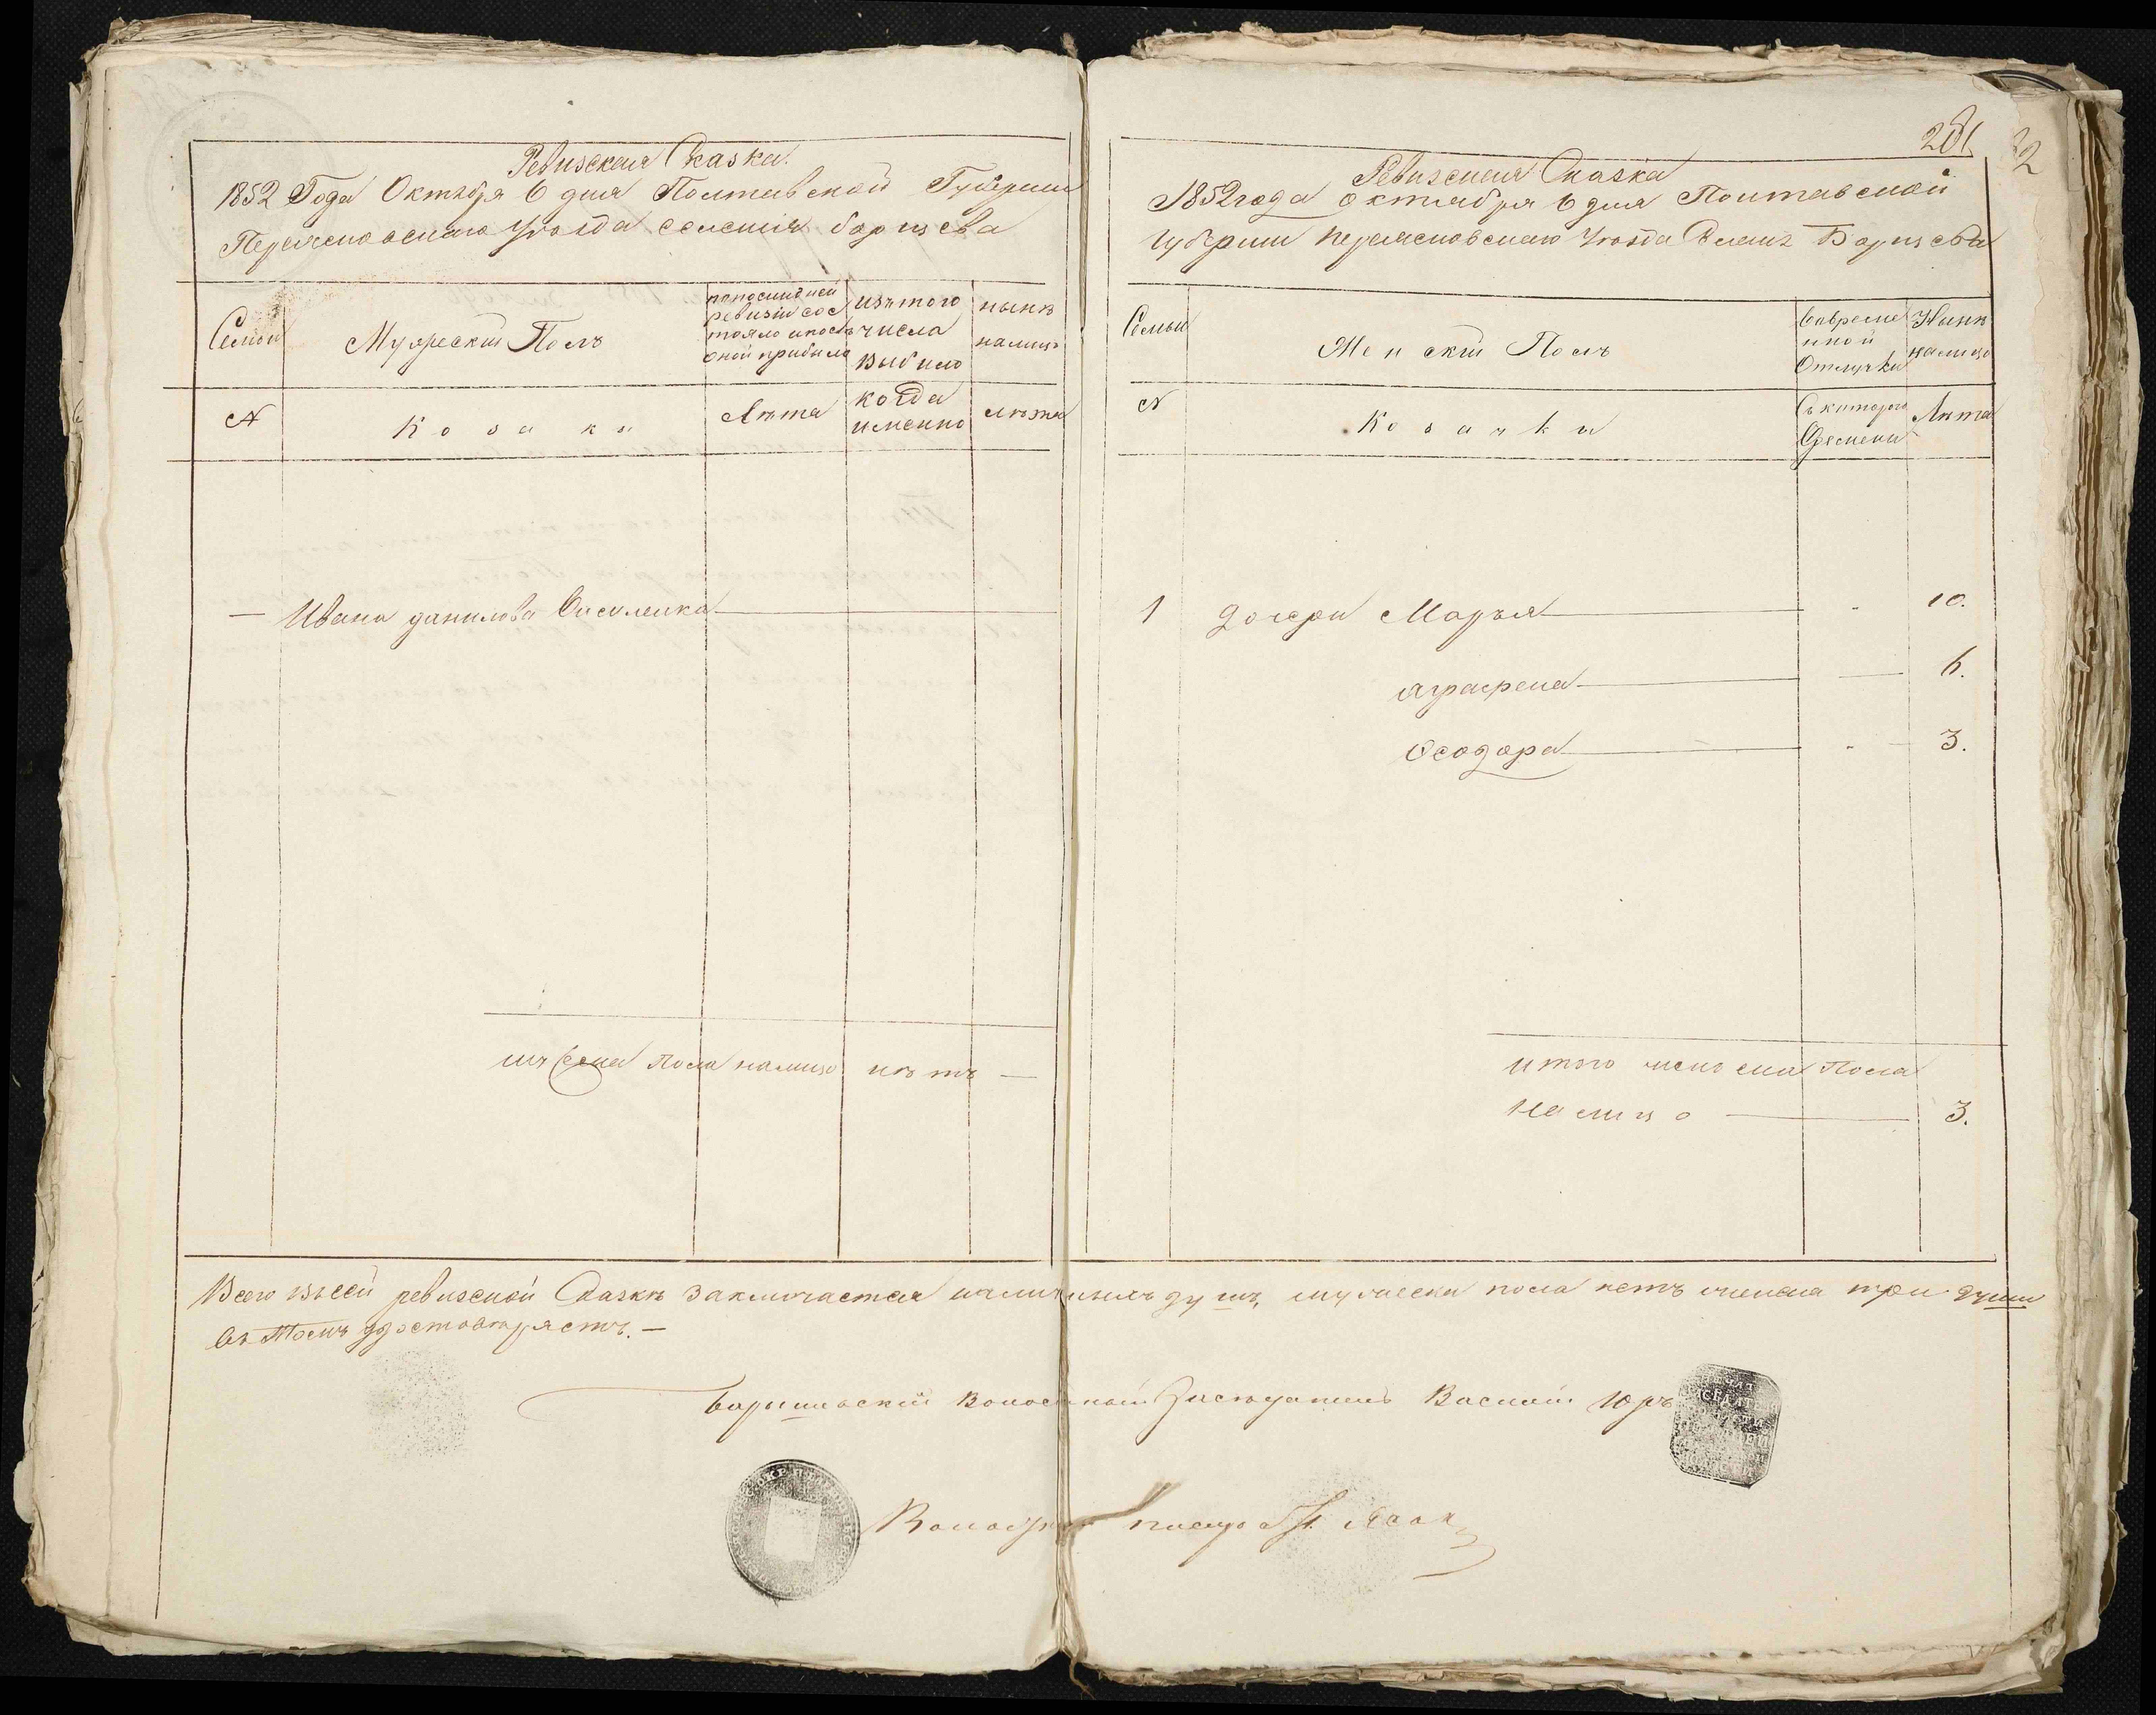 Ревизская Сказка.
1852 Года Октября 6 дня Полтавской Губернии
Переясловскаго Уѣзда селенія борисева
Семьи
Мужескій Полъ
попослѣдней ревизіи состояло ипослѣ оной прибыло
изътого числа выбыло
нынѣ налицо
№
Козаки
Лѣта
когда именно
лѣта
— Ивана данилова Василенка
мужеска пола налицо нѣтъ —
281
32
Ревизская Сказка
1852 года октября 6 дня Полтавской
губерніи переясловскаго Уѣзда Селенія Борисева
Семьи
Женскій Полъ
вовременной Отлучки
Нынѣ налицо
№
Козачки
Съ котораго Времени
Лѣта
1 дочери Марья 10.
аграфена 6.
Феодора 3.
итого женска Пола
налицо 3.
Всего въсей ревизской Сказкѣ заключается наличныхъ душъ, мужеска пола нетъ женска три души
въ томъ удостоверяетъ. —
Волостной Засѣдатель Василій
Волостной писарь